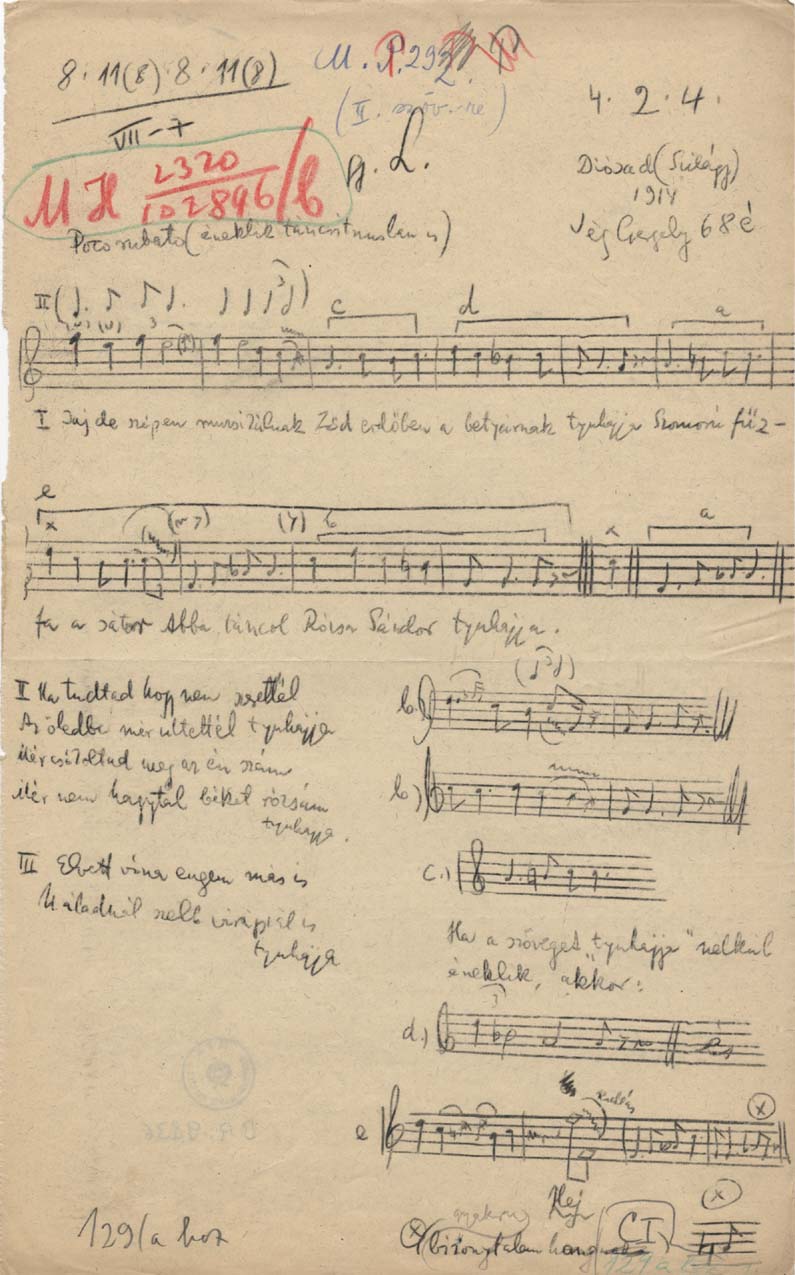 8· 11(8)· 8· 11(8)
VII-7
M. P. 292
(II. szöv.-re)
4. 2. 4.
MH 2320
102896/b
gy. L.
Diósad (Szilágy)
1914
Vég Gergely 68 é
Poco rubato (éneklik táncritmusban is)
II
3
3
c
d
a
I Jaj de szépen muzsikálnak Zöd erdőben a betyárnak tyuhajja Szomorú fűz-
e
x
b
x
a
fa a sátor Abba táncol Rózsa Sándor tyuhajja.
II Ha tudtad hogy nem szettél
Az öledbe mér ültettél tyuhajja
Mér csókoltad meg az én szám
Mér nem hagytál béket rózsám
tyuhajja.
III Elvett vóna engem más is
Náladnál szebb virágszál is
tyuhajja
b.
b)
c.)
Ha a szöveget "tyuhajja" nélkül
éneklik, akkor:
d.)
3
e
x
Hej
129/a hoz
x
gyakran
bizonytalan
CI
x